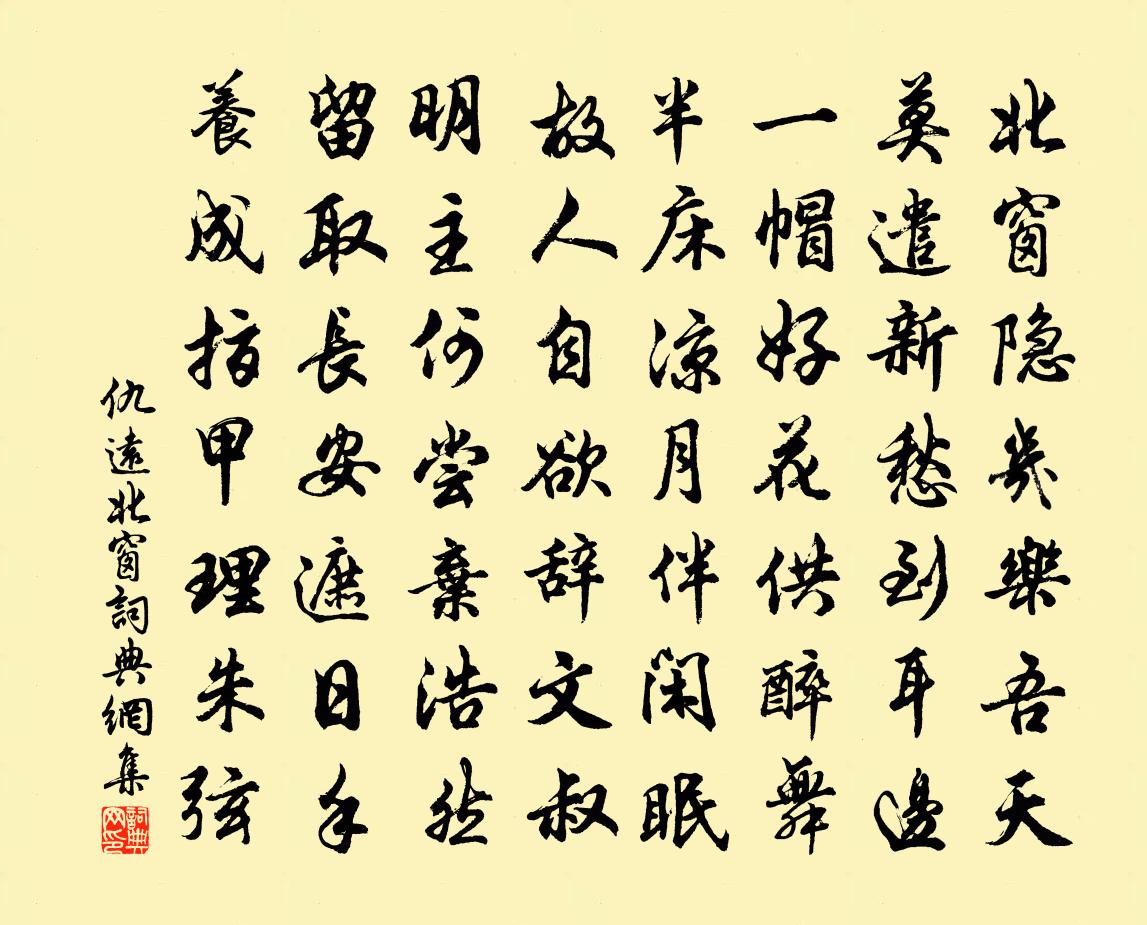 北窗隐几樂吾天
莫遣新愁到耳邊
一帽好花供醉舞
半床凉月伴闲眠
故人自欲辞文叔
明主何尝棄浩然
留取長安遮日手
養成指甲理朱弦
仇遠北窗詞典網集
詞典網印